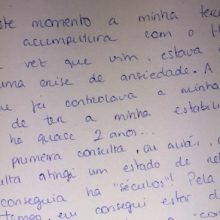 ste momento a minha terc
acumputura com o H
vez que vim, estava
uma crise de ansiedade. A
que já controlava a minha
de ter a minha estabil
há quase 2 anos...
primeira consulta, ou aliás,
ulta atingi um estado de rel
conseguia há "séculos"! Pela
tempo, eu consegui estar